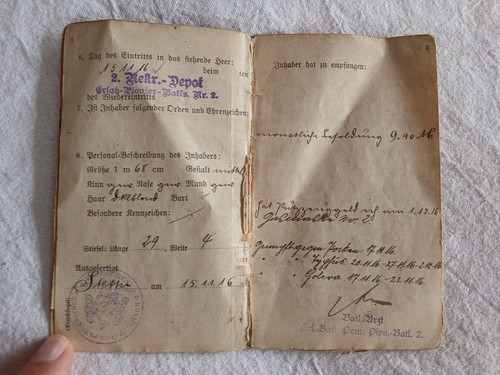 6. Tag des Eintritts in das stehende Heer:
15.11.16 beim ten
2. Rekr.-Depot
Ersatz-Pionier-Batls. Nr. 2.
des Wiedereintritts
7. Ist Inhaber folgender Orden und Ehrenzeichen:
8. Personal-Beschreibung des Inhabers:
Größe 1 m 68 cm Gestalt mittel
Kinn gew Nase gew Mund gew
Haar dklblond Bart
Besondere Kennzeichen:
Stiefel: Länge 29, Weite 4
Ausgefertigt
Stettin am 15.11.16
Inhaber hat zu empfangen:
monatliche Besoldung 9.90 M
hat Putzzeuggeld am 1.12.16
Geimpft gegen Pocken 17.11.16
" " Typhus 20.11.16 - 27.11.16 - 2.12.16
" " Colera 17.11.16 - 23.11.16
Batl.-Arzt
Ers. Batl. Pom. Pion.-Batl. 2.